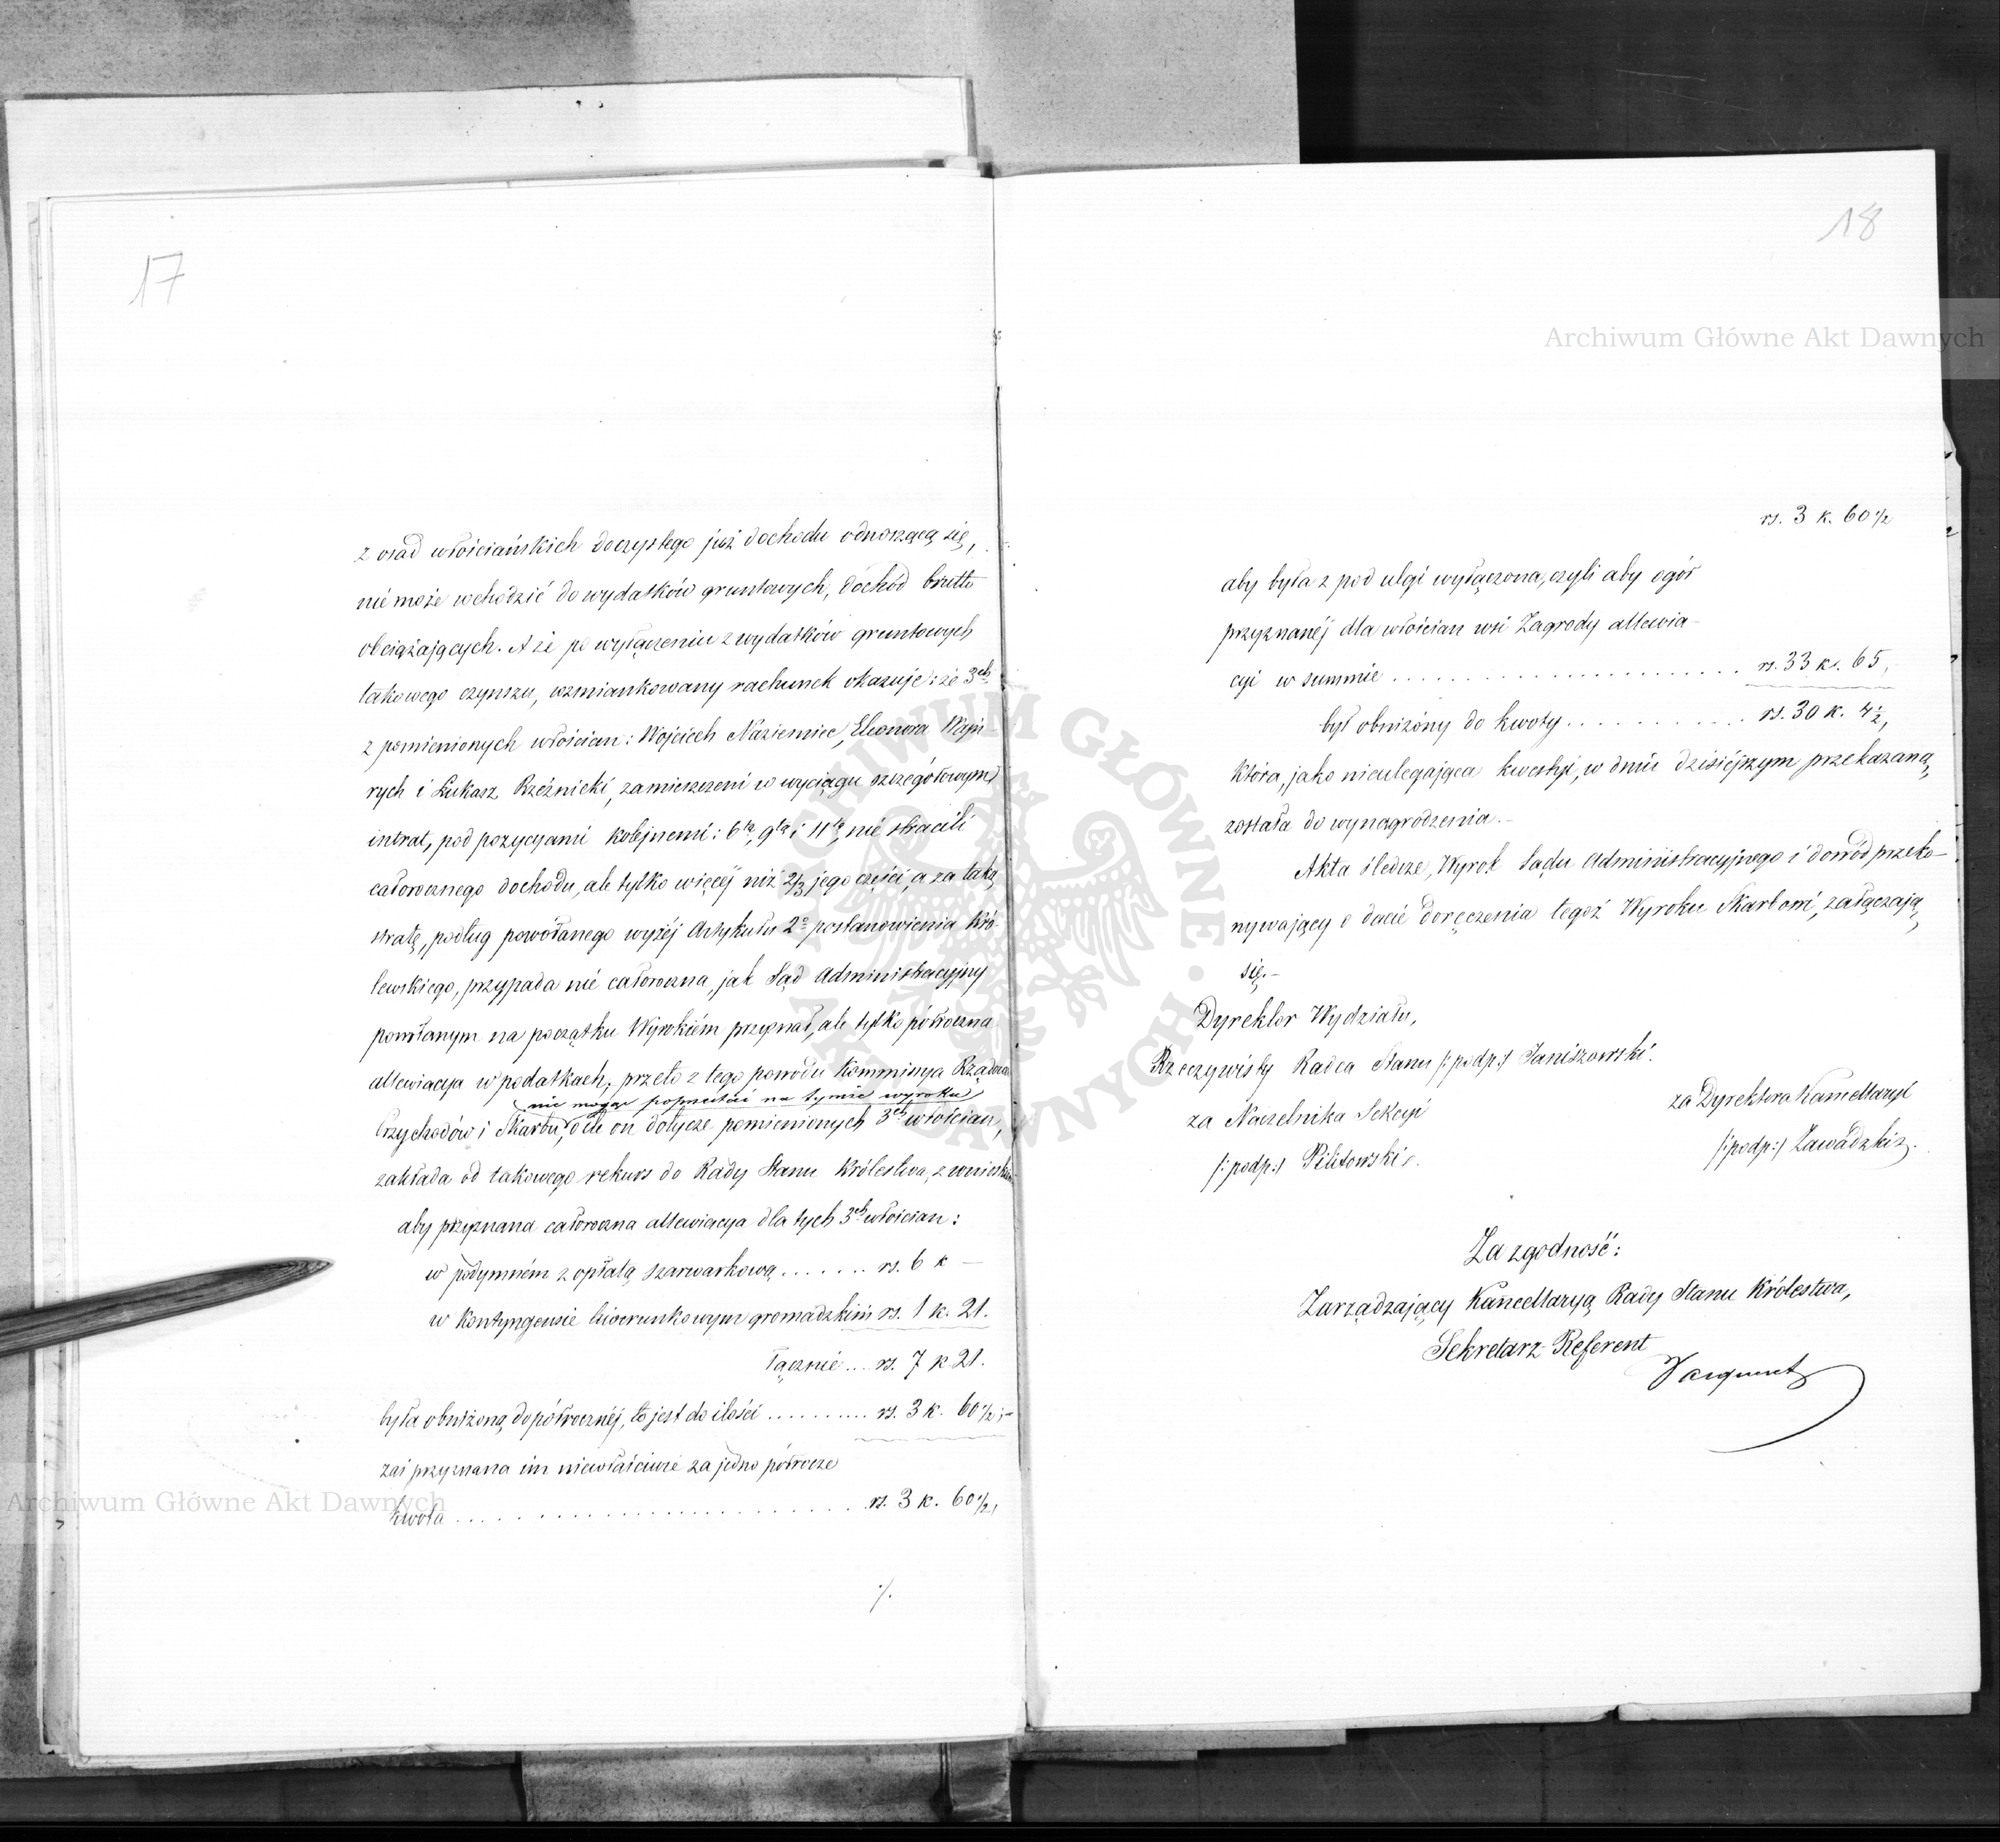 17
z osad włościańskich doczystego już dochodu odnoszącą się,
nie może wchodzić do wydatków gruntowych, dochód brutto
obciążających. A że po wyłączeniu z wydatków gruntowych
takowego czynszu, wzmiankowany rachunek okazuje: że 3ch
z pomienionych włościan: Wojciech Naziemiec, Eleonora
rych i Łukasz Rzeźnicki, zamieszczeni w wyciągu szczegółowym
intrat, pod pozycyami kolejnemi: 6tą, 9tą i 11tą, nie stracili
całorocznego dochodu, ale tylko więcéj niż 2/3 jego części, a za taką
stratę, podług powołanego wyżéj Artykułu 2o postanowienia Kró-
lewskiego, przypada nie całoroczna, jak Sąd Administracyjny
powołanym na początku Wyrokiem przyznał, ale tylko półroczna
allewiacya w podatkach; przeto z tego powodu Kommissya Rządowa
nie mogąc poprzestać na tymże wyroku
Przychodów i Skarbu, o ile on dotycze pomienionych 3ch włościan,
zakłada od takowego rekurs do Rady Stanu Królestwa, z wnioskiem
aby przyznana całoroczna allewiacya dla tych 3ch włościan:
w podymném z opłatą szarwarkową ....... rs. 6 k —
w kontyngensie liwerunkowym gromadzkim rs. 1 k. 21.
łącznie ... rs. 7 k 21.
była obniżoną do półrocznéj, to jest do ilości .......... rs. 3 k. 60 1/2;—
zaś przyznana im niewłaściwie za jedno półrocze
kwota ............................ rs. 3 k. 60 1/2,
./.
18
rs. 3 k. 60 1/2
aby była z pod ulgi wyłączona, czyli aby ogół
przyznanéj dla włościan wsi Zagrody allewia-
cyi w summie ........................ rs. 33 k. 65,
był obniżony do kwoty ............ rs. 30 k. 4 1/2,
która, jako nieulegająca kwestyi, w dniu dzisiejszym przekazaną
została do wynagrodzenia.—
Akta śledcze, Wyrok Sądu Administracyjnego i dowód przeko-
nywający o dacie doręczenia tegoż Wyroku Skarbowi, załączają
się.—
Dyrektor Wydziału,
Rzeczywisty Radca Stanu /:podp:/ Janiszowski.
za Dyrektora Kancellaryi
za Naczelnika Sekcyi
/:podp:/ Zawadzki
/:podp:/ Pilitowski
Za zgodność:
Zarządzający Kancellaryą Rady Stanu Królestwa,
Sekretarz Referent
Archiwum Główne Akt Dawnych
Archiwum Główne Akt Dawnych
ARCHIWUM GŁÓWNE AKT DAWNYCH